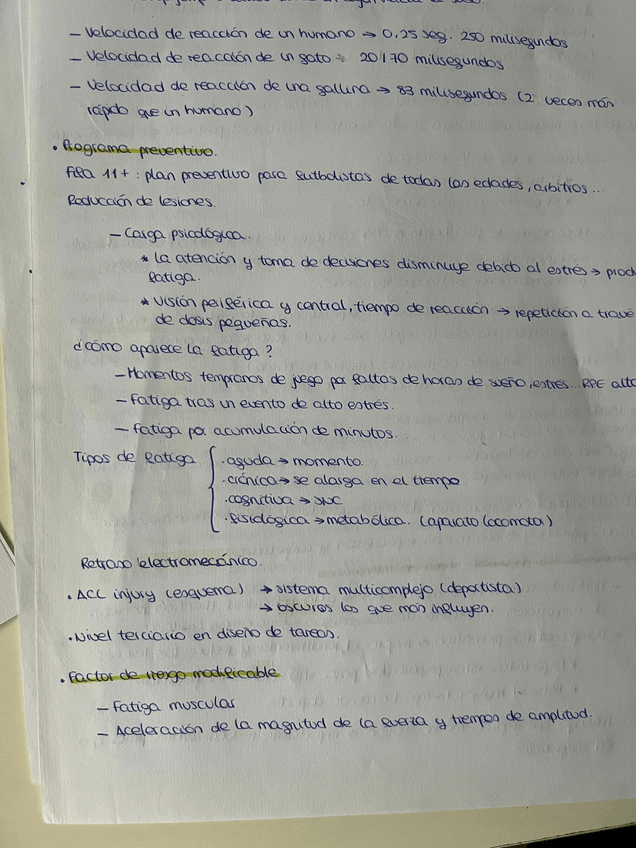 - Velocidad de reacción de un humano → 0,25 seg. 250 milisegundos
- Velocidad de reacción de un gato ÷ 20/70 milisegundos
- Velocidad de reacción de una gallina → 83 milisegundos (2 veces más
rápido que un humano)
• Programa preventivo.
FIFA 11+ : plan preventivo para futbolistas de todas las edades, árbitros...
Reducción de lesiones.
- Carga psicológica.
* La atención y toma de decisiones disminuye debido al estrés → prod
fatiga.
* Visión periférica y central, tiempo de reacción → repetición a travé
de dosis pequeñas.
¿Cómo aparece la fatiga?
- Momentos tempranos de juego por faltas de horas de sueño, estrés... RPE alto
- Fatiga tras un evento de alto estrés.
- Fatiga por acumulación de minutos...
Tipos de fatiga { · aguda → momento.
· crónica → se alarga en el tiempo
· cognitiva → SNC
· fisiológica → metabólica. (aparato locomotor)
Retraso electromecánico.
• ACC injury (esquema) → sistema multicomplejo (deportista)
→ oscuros los que más influyen.
• Nivel terciario en diseño de tareas.
• Factor de riesgo modificable
- Fatiga muscular
- Aceleración de la magnitud de la fuerza y tiempos de amplitud.